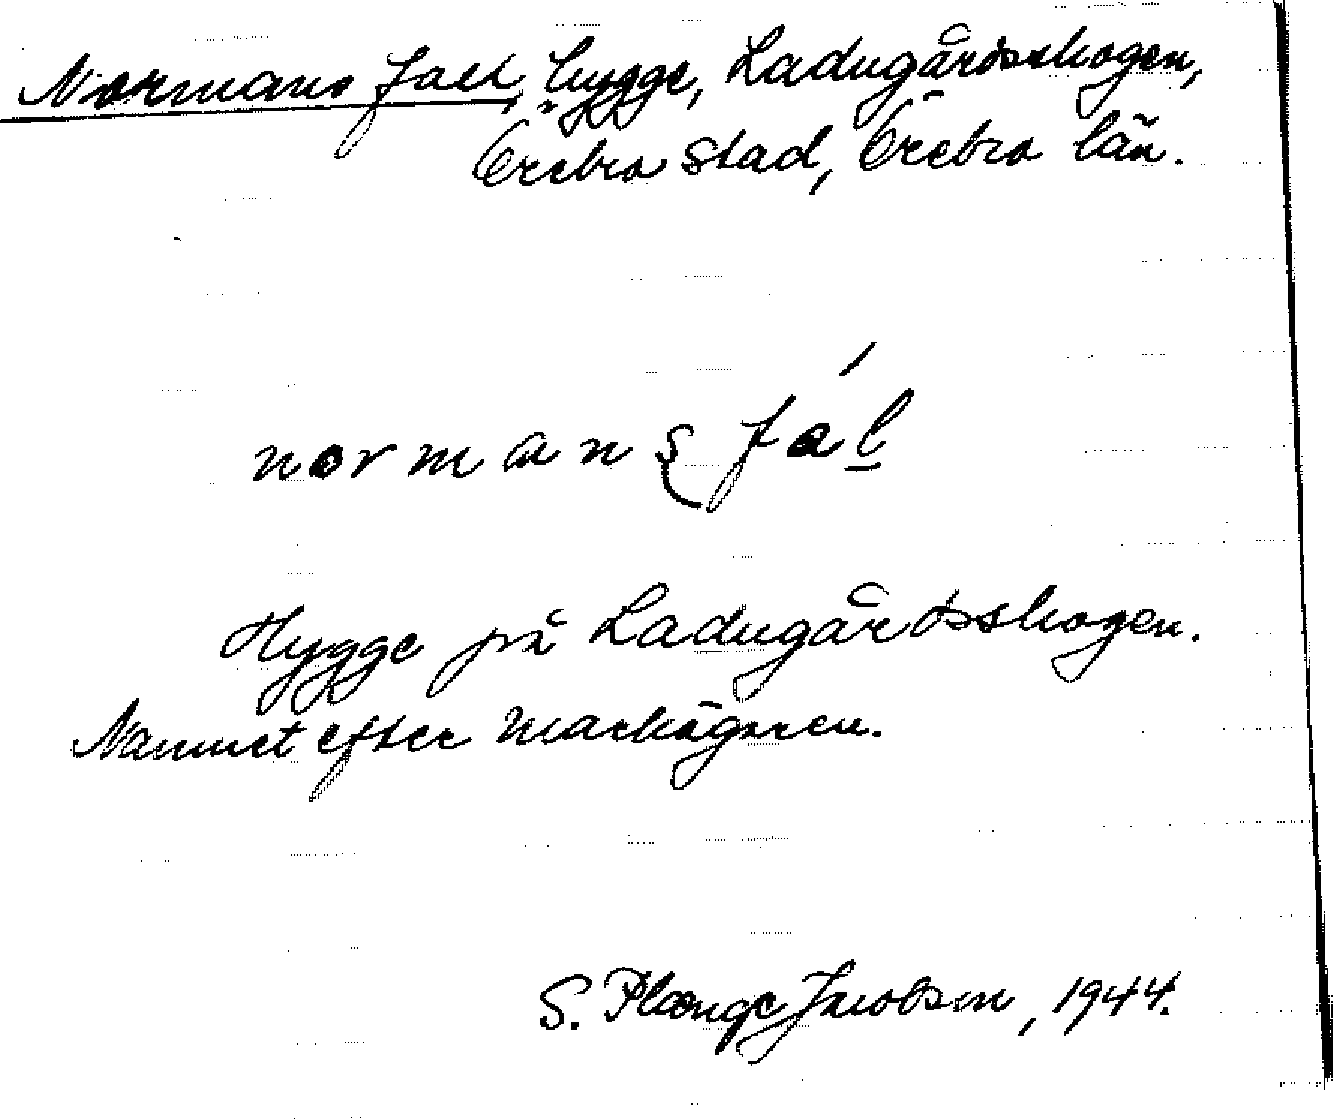 Normans fall, hygge, Ladugårdsskogen,
Örebro stad, Örebro län.
normans fal
Hygge på Ladugårdsskogen.
Namnet efter markägaren.
S. Plænge Jacobsen, 1944.